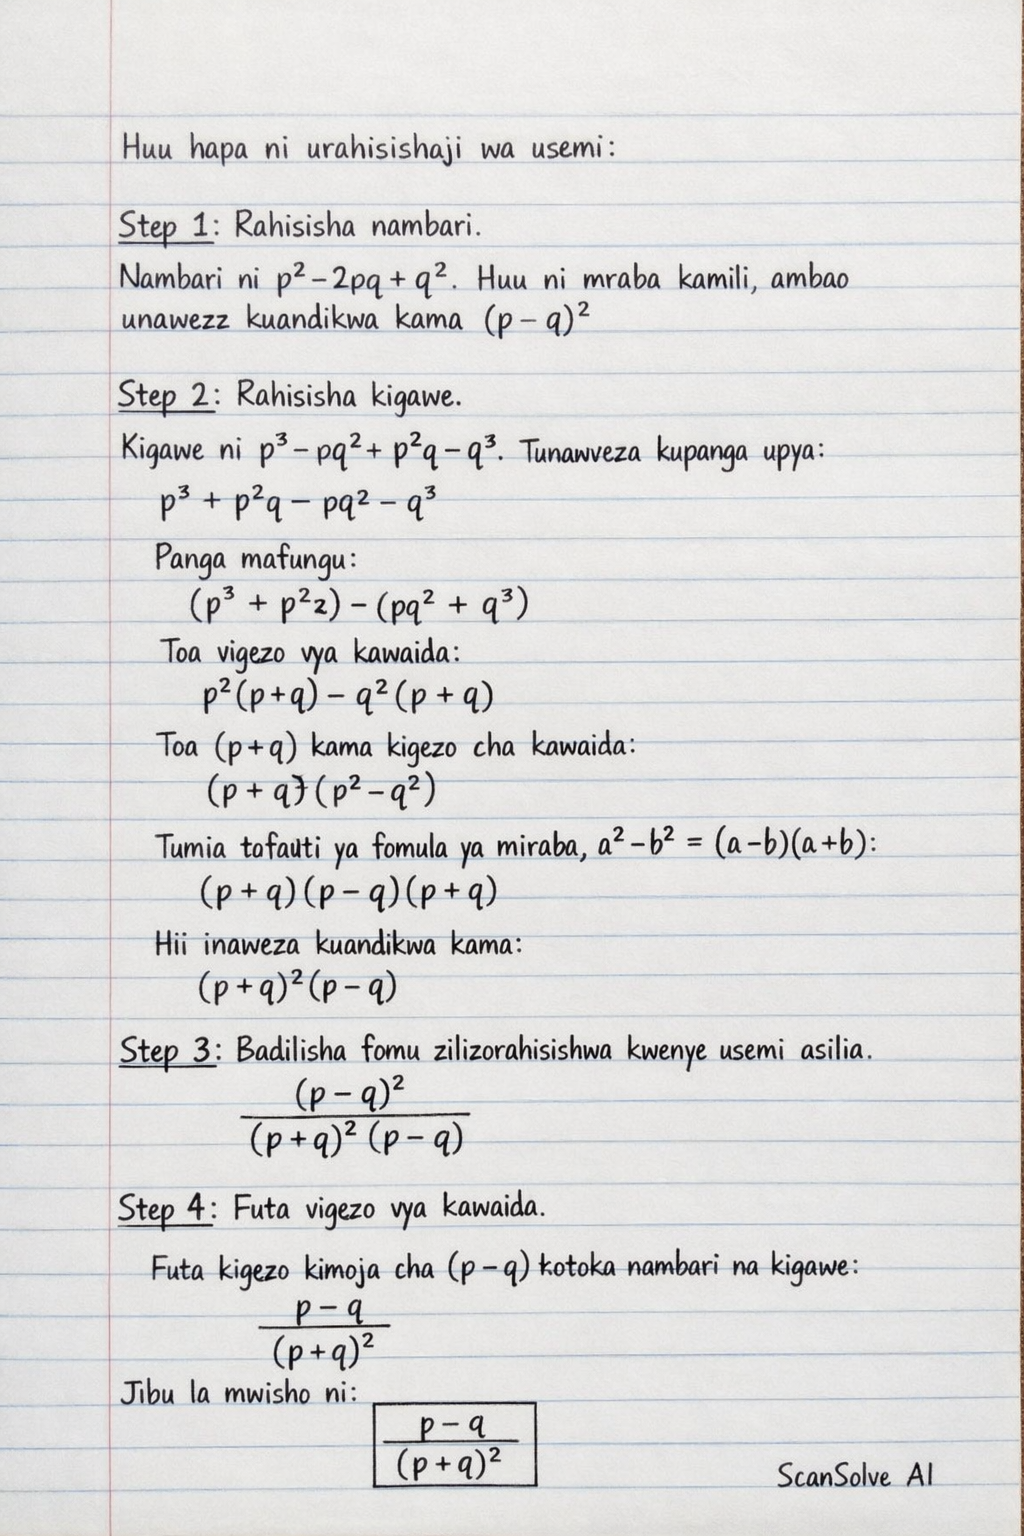 Huu hapa ni urahisishaji wa usemi:
Step 1: Rahisisha nambari.
Nambari ni p² - 2pq + q². Huu ni mraba kamili, ambao
unawezz kuandikwa kama (p - q)²
Step 2: Rahisisha kigawe.
Kigawe ni p³ - pq² + p²q - q³. Tunawveza kupanga upya:
p³ + p²q - pq² - q³
Panga mafungu:
(p³ + p²z) - (pq² + q³)
Toa vigezo vya kawaida:
p²(p+q) - q²(p + q)
Toa (p+q) kama kigezo cha kawaida:
(p + q)(p² - q²)
Tumia tofauti ya fomula ya miraba, a² - b² = (a-b)(a+b):
(p + q)(p - q)(p + q)
Hii inaweza kuandikwa kama:
(p + q)²(p - q)
Step 3: Badilisha fomu zilizorahisishwa kwenye usemi asilia.
(p - q)²
(p + q)² (p - q)
Step 4: Futa vigezo vya kawaida.
Futa kigezo kimoja cha (p - q) kotoka nambari na kigawe:
p - q
(p + q)²
Jibu la mwisho ni:
p - q
(p + q)²
ScanSolve AI